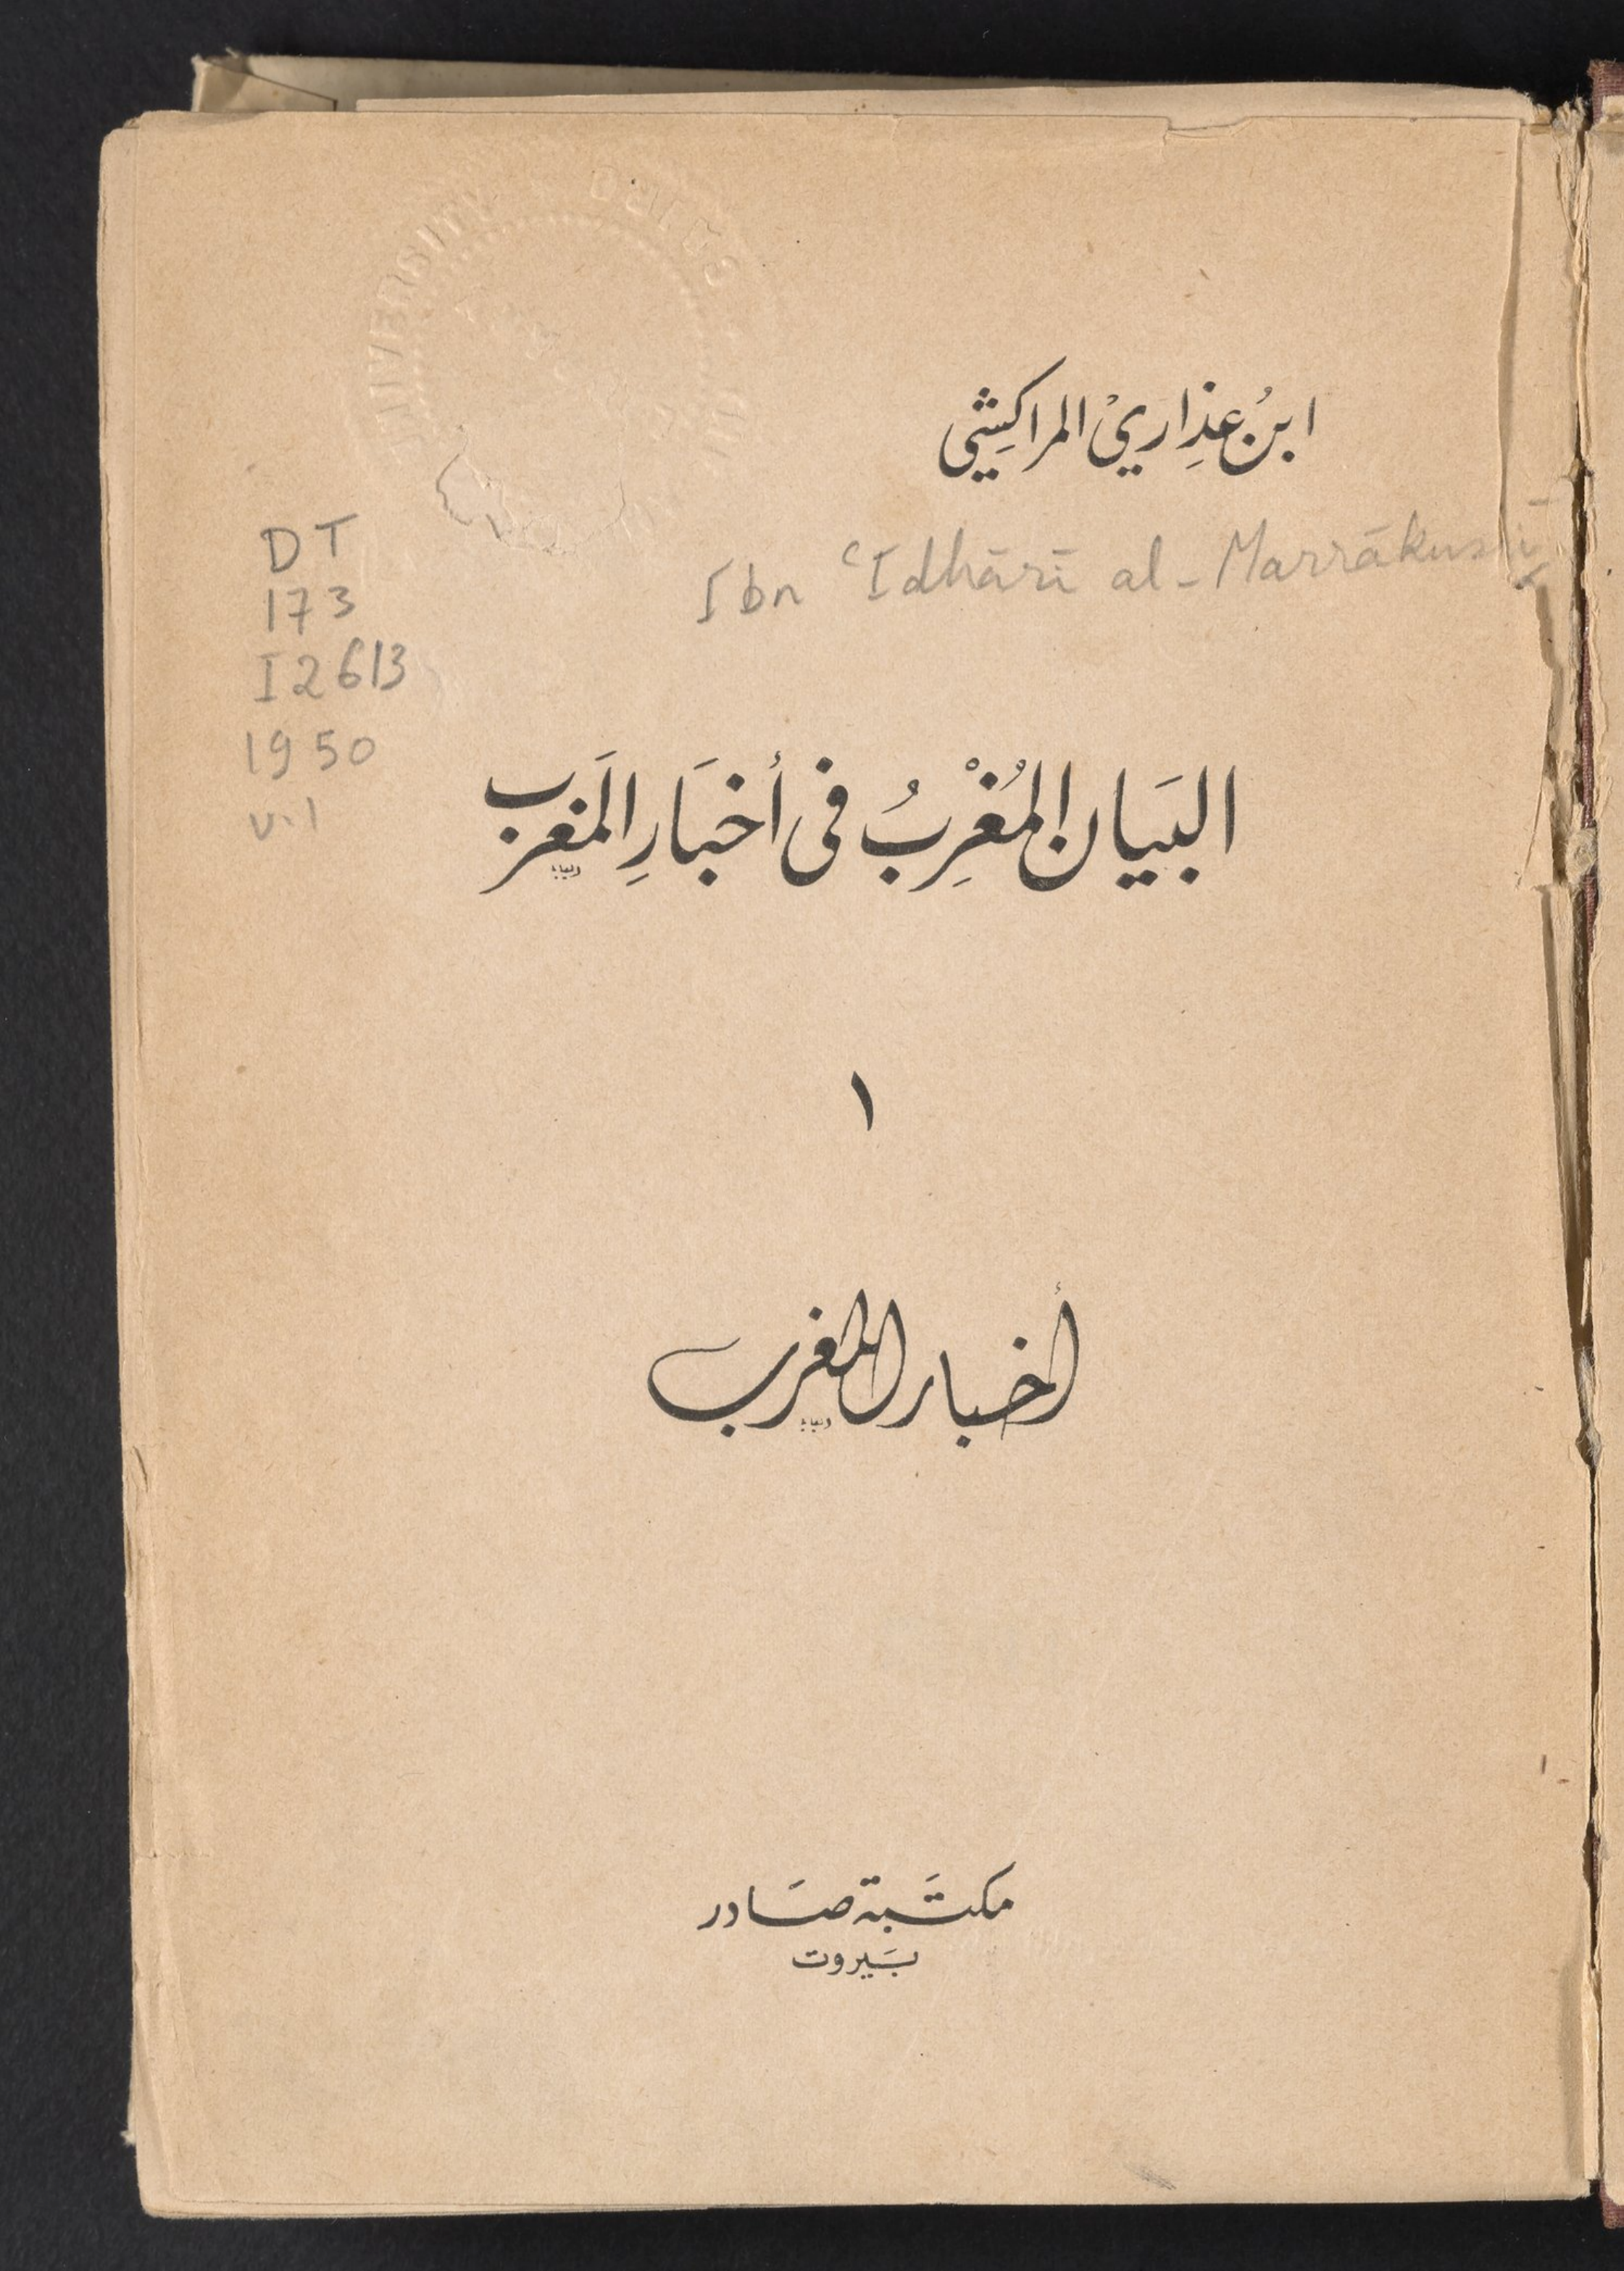 ابنُ عِذاريْ المراكِشي
Ibn ʿIdhārī al-Marrākushī
DT
173
I2613
1950
v.1
البَيَان المُغْرِبُ فى أخبَارِ المَغرب
١
أخبار المغرب
مكتَبة صَادر
بَيروت